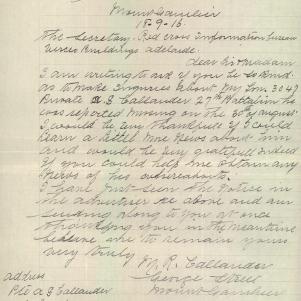 Mount Gambier
18-9-16
The Secretary Red Cross Information Bureau
Vivers Buildings adelaide
Dear Sir madam
I am writing to ask if you be so kind
as to make Inquiries about my Son 3047
Private A G Callander 27th Battalion he
was reported missing on the of august
I would be very thankful if I could
learn a little more News about him
and would be very gratified indeed
If you could help me obtain any
News of his whereabouts.
I have Just seen the Notice in
the advertiser as above and am
sending along to you at once
thanking you in the meantime
believe me to remain yours
Very truly
R. Callander
George Street
Mount Gambier
address
Pte A G Callander